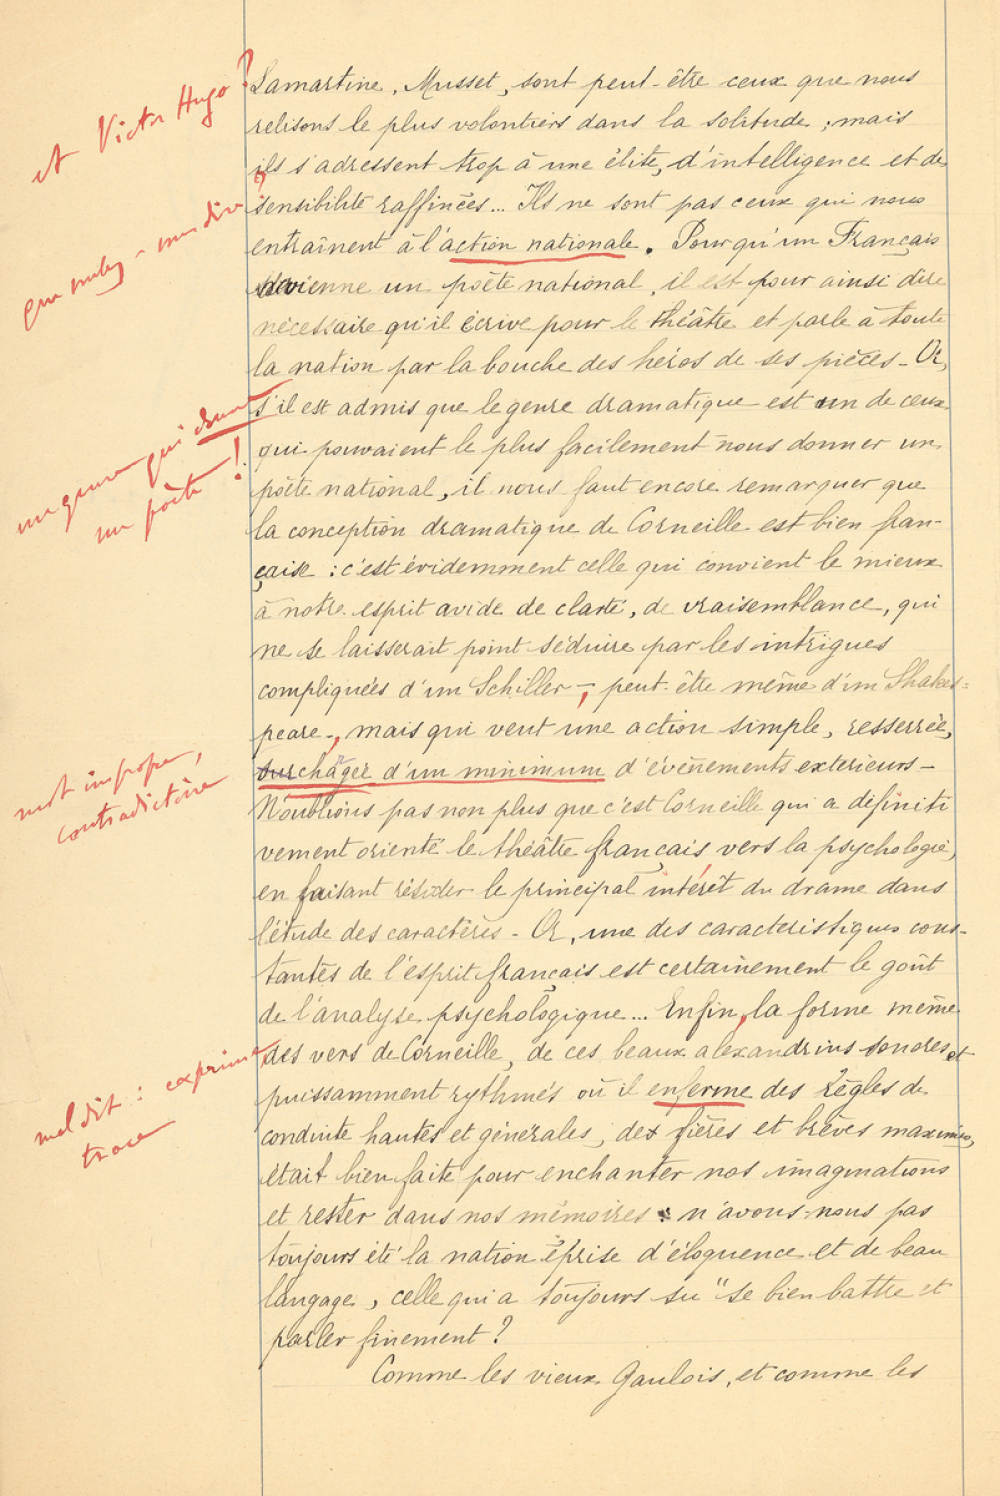 et Victor Hugo?
Lamartine, Musset, sont peut-être ceux que nous
relisons le plus volontiers dans la solitude ; mais
ils s'adressent trop à une élite, d'intelligence et de
sensibilité raffinées... Ils ne sont pas ceux qui nous
entraînent à l'action nationale. Pour qu'un Français
devienne un poète national, il est pour ainsi dire
nécessaire qu'il écrive pour le théâtre et parle à toute
la nation par la bouche des héros de ses pièces - Or,
s'il est admis que le genre dramatique est un de ceux
un genre qui donne
un poète !
qui pouvaient le plus facilement nous donner un
poète national, il nous faut encore remarquer que
la conception dramatique de Corneille est bien fran-
çaise : c'est évidemment celle qui convient le mieux
à notre esprit avide de clarté, de vraisemblance, qui
ne se laisserait point séduire par les intrigues
compliquées d'un Schiller -, peut-être même d'un Shakes=
peare -, mais qui veut une action simple, resserrée,
mot impropre,
contradictoire
surchager d'un minimum d'évènements extérieurs -
N'oublions pas non plus que c'est Corneille qui a définiti
vement orienté le théâtre français vers la psychologie,
en faisant résider le principal intérêt du drame dans
l'étude des caractères - Or, une des caractéristiques cons-
tantes de l'esprit français est certainement le goût
de l'analyse psychologique... Enfin, la forme même
des vers de Corneille, de ces beaux alexandrins sonores et
mal dit : exprime
trace
puissamment rythmés où il enferme des règles de
conduite hautes et générales, des fières et brèves maximes,
était bien faite pour enchanter nos imaginations
et rester dans nos mémoires : n'avons-nous pas
toujours été la nation éprise d'éloquence et de beau
langage, celle qui a toujours su "se bien battre et
parler finement ?
Comme les vieux Gaulois, et comme les